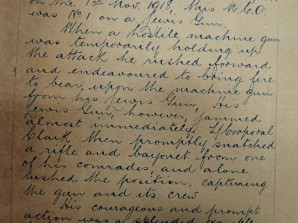 on the 1st Nov. 1918, this N.C.O.
was No 1 on a Lewis Gun.
When a hostile machine gun
was temporarily holding up
the attack he rushed forward
and endeavoured to bring fire
to bear upon the machine gun
from his Lewis Gun. His
Lewis Gun, however, jammed
almost immediately. L/Corporal
Clark then promptly snatched
a rifle and bayonet from one
of his comrades, and alone
rushed the position, capturing
the gun and its crew.
His courageous and prompt
action was a splendid example